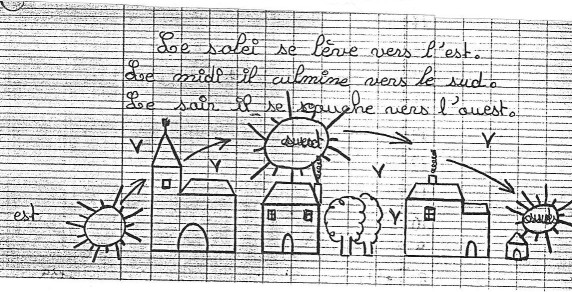 Le solei se lève vers l'est.
Le midi il culmine vers le sud.
Le soir il se couche vers l'ouest.
est